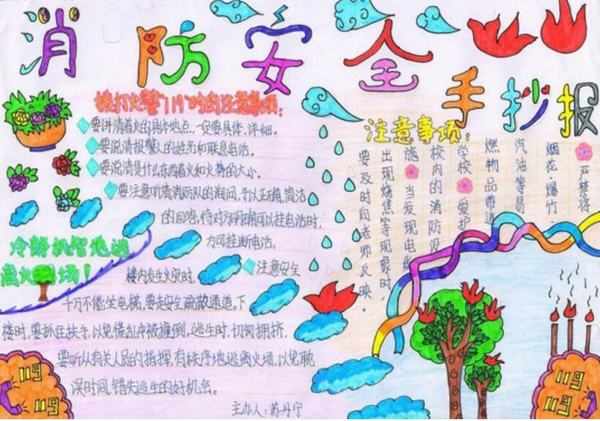 消防安全手抄报
拨打火警"119"的时候注意事项:
要讲清着火的具体地点,一定要具体、详细。
要说清报警人的姓名和联系电话。
要说清是什么东西着火和火势的大小。
要注意听清消防队的询问,予以正确,简洁
的回答,待对方明确可以挂电话时,
方可挂断电话。
冷静机智地逃
离火场!
注意安全
楼内发生火灾时,
千万不能坐电梯,要走安全疏散通道。下
楼时,要抓住扶手,以免慌乱中被撞倒,逃生时,切勿拥挤,
要听从有关人员的指挥,有秩序地逃离火场,以免耽
误时间,错失逃生的好机会。
主办人:苏丹宁
注意事项:
严禁将
烟花、爆竹、
汽油等易
燃物品带进
学校。爱护
校内的消防设
施。当发现电器
出现烧焦等现象时,
要及时向老师反映。
119
119
119
119